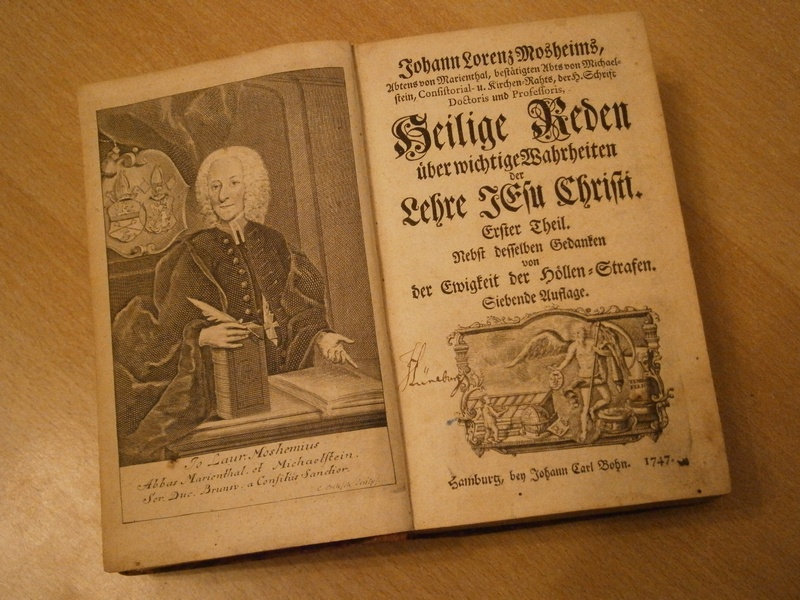 Jo Laur. Moshemius
Abbas Marienthal. et Michaelstein.
Ser. Duc. Brunsv. a Consiliis Sanctior.
Johann Lorenz Mosheims,
Abtens von Marienthal, bestätigten Abts von Michael-
stein, Consistorial- u. Kirchen-Rahts, der H. Schrift
Doctoris und Professoris,
Heilige Reden
über wichtige Wahrheiten
der
Lehre JEsu Christi.
Erster Theil.
Nebst desselben Gedanken
von
der Ewigkeit der Höllen-Strafen.
Siebende Auflage.
Hamburg, bey Johann Carl Bohn. 1747.